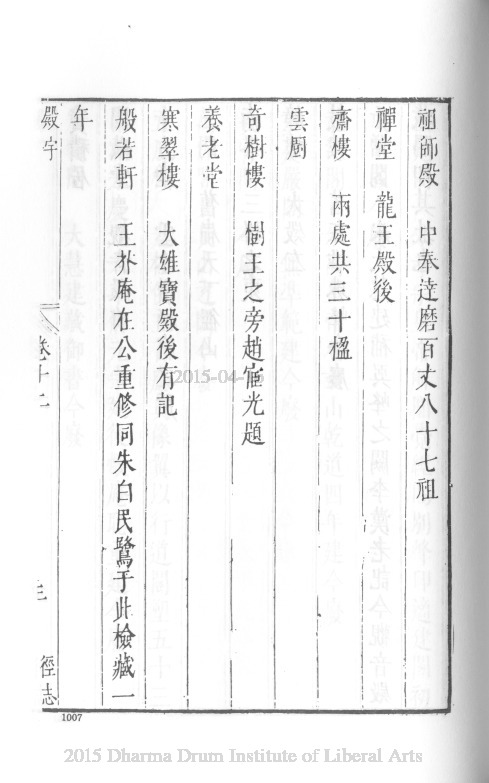 祖師殿　中奉達磨百丈八十七祖
禪堂　龍王殿後
齋樓　兩處共三十楹
雲厨
奇樹樓　樹王之旁趙宧光題
養老堂
寒翠樓　大雄寶殿後有記
般若軒　王芥庵在公重修同朱白民鷺于此檢藏一
年
殿宇　卷十二　三　徑志
1007
2015 Dharma Drum Institute of Liberal Arts